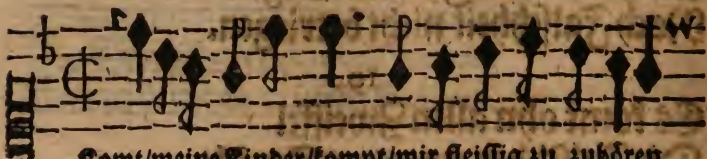 Komt/meine Kinder/kompt/mir fleissig zu zuhören